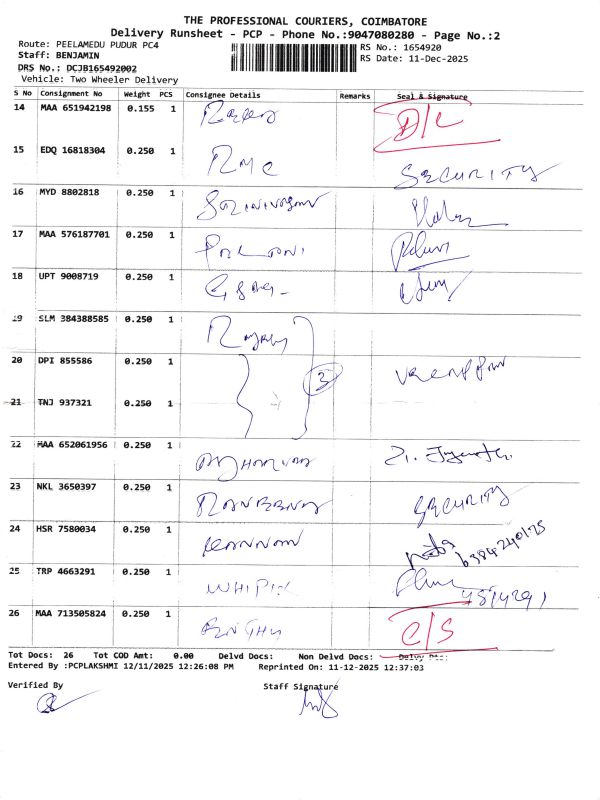 THE PROFESSIONAL COURIERS, COIMBATORE
Delivery Runsheet - PCP - Phone No.:9047080280 - Page No.:2
Route: PEELAMEDU PUDUR PC4 RS No.: 1654920
Staff: BENJAMIN RS Date: 11-Dec-2025
DRS No.: DCJB165492002
Vehicle: Two Wheeler Delivery
S No Consignment No Weight PCS Consignee Details Remarks Seal & Signature
14 MAA 651942198 0.155 1 D/L
15 EDQ 16818304 0.250 1 RMC SECURITY
16 MYD 8802818 0.250 1
17 MAA 576187701 0.250 1
18 UPT 9008719 0.250 1
19 SLM 384388585 0.250 1
20 DPI 855586 0.250 1 3
21 TNJ 937321 0.250 1
22 MAA 652061956 0.250 1
23 NKL 3650397 0.250 1 SECURITY
24 HSR 7580034 0.250 1 KANNAN
25 TRP 4663291 0.250 1
26 MAA 713505824 0.250 1 C/S
Tot Docs: 26 Tot COD Amt: 0.00 Delvd Docs: Non Delvd Docs: Delvy Pts:
Entered By :PCPLAKSHMI 12/11/2025 12:26:08 PM Reprinted On: 11-12-2025 12:37:03
Verified By Staff Signature